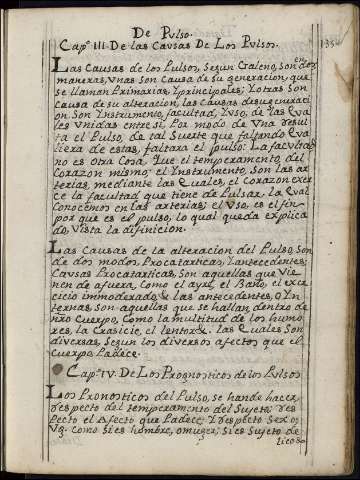 De Pulso.
Capº III. De las Causas De Los Pulsos.
Las Causas de los Pulsos, Segun Galeno, Son en dos
maneras, Unas Son Causa de su generacion, que
se llaman Primarias, Yprincipales; Y otras Son
causa de su alteracion, las Causas desugeneracion
Son Instrumento, facultad, Yuso, de las Qua
les Unidas entre si, Por modo de Una resul
ta el Pulso, de tal Suerte que faltando Qua
liera de estas, faltara el pulso: La facultad
no es otra Cosa Que el temperamento del
Corazon mismo; el Instrumento, Son las ar
terias, mediante las Quales, el Corazon exer
ce la facultad que tiene de Pulsar, la Qual
Conocemos en las arterias; el Uso, es el fin
por que es el pulso, lo qual queda explica
do, Vista la difinicion.
Las Causas de la alteracion del Pulso, Son
de dos modos, Procatarticas, Yantecedentes;
Causas Procatarticas, Son aquellas que Vie
nen de afuera, Como el ayre, el Baño, el exer
cicio immoderado, & las antecedentes, O Yn
ternas, Son aquellas que se hallan dentro de
nro Cuerpo, Como la multitud de los humo
res, la Crasicie, el lentor &. las Quales Son
diversas, Segun los diversos afectos que el
Cuerpo Padece.
Capº IV. De Los Prognosticos de los Pulsos
Los Pronosticos del Pulso, se hande hacer
respecto del temperamento del Sujeto; res
pecto el Afecto que Padece; Y respecto Sexo:
Vg. Como Si es hombre, omuger; Si es Sujeto de
licado